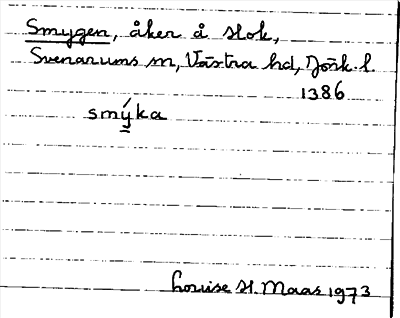 Smygen, åker å Stok,
Svenarums sn, Västra hd, Jönk. l.
1386
smýka
Louise St. Maas 1973